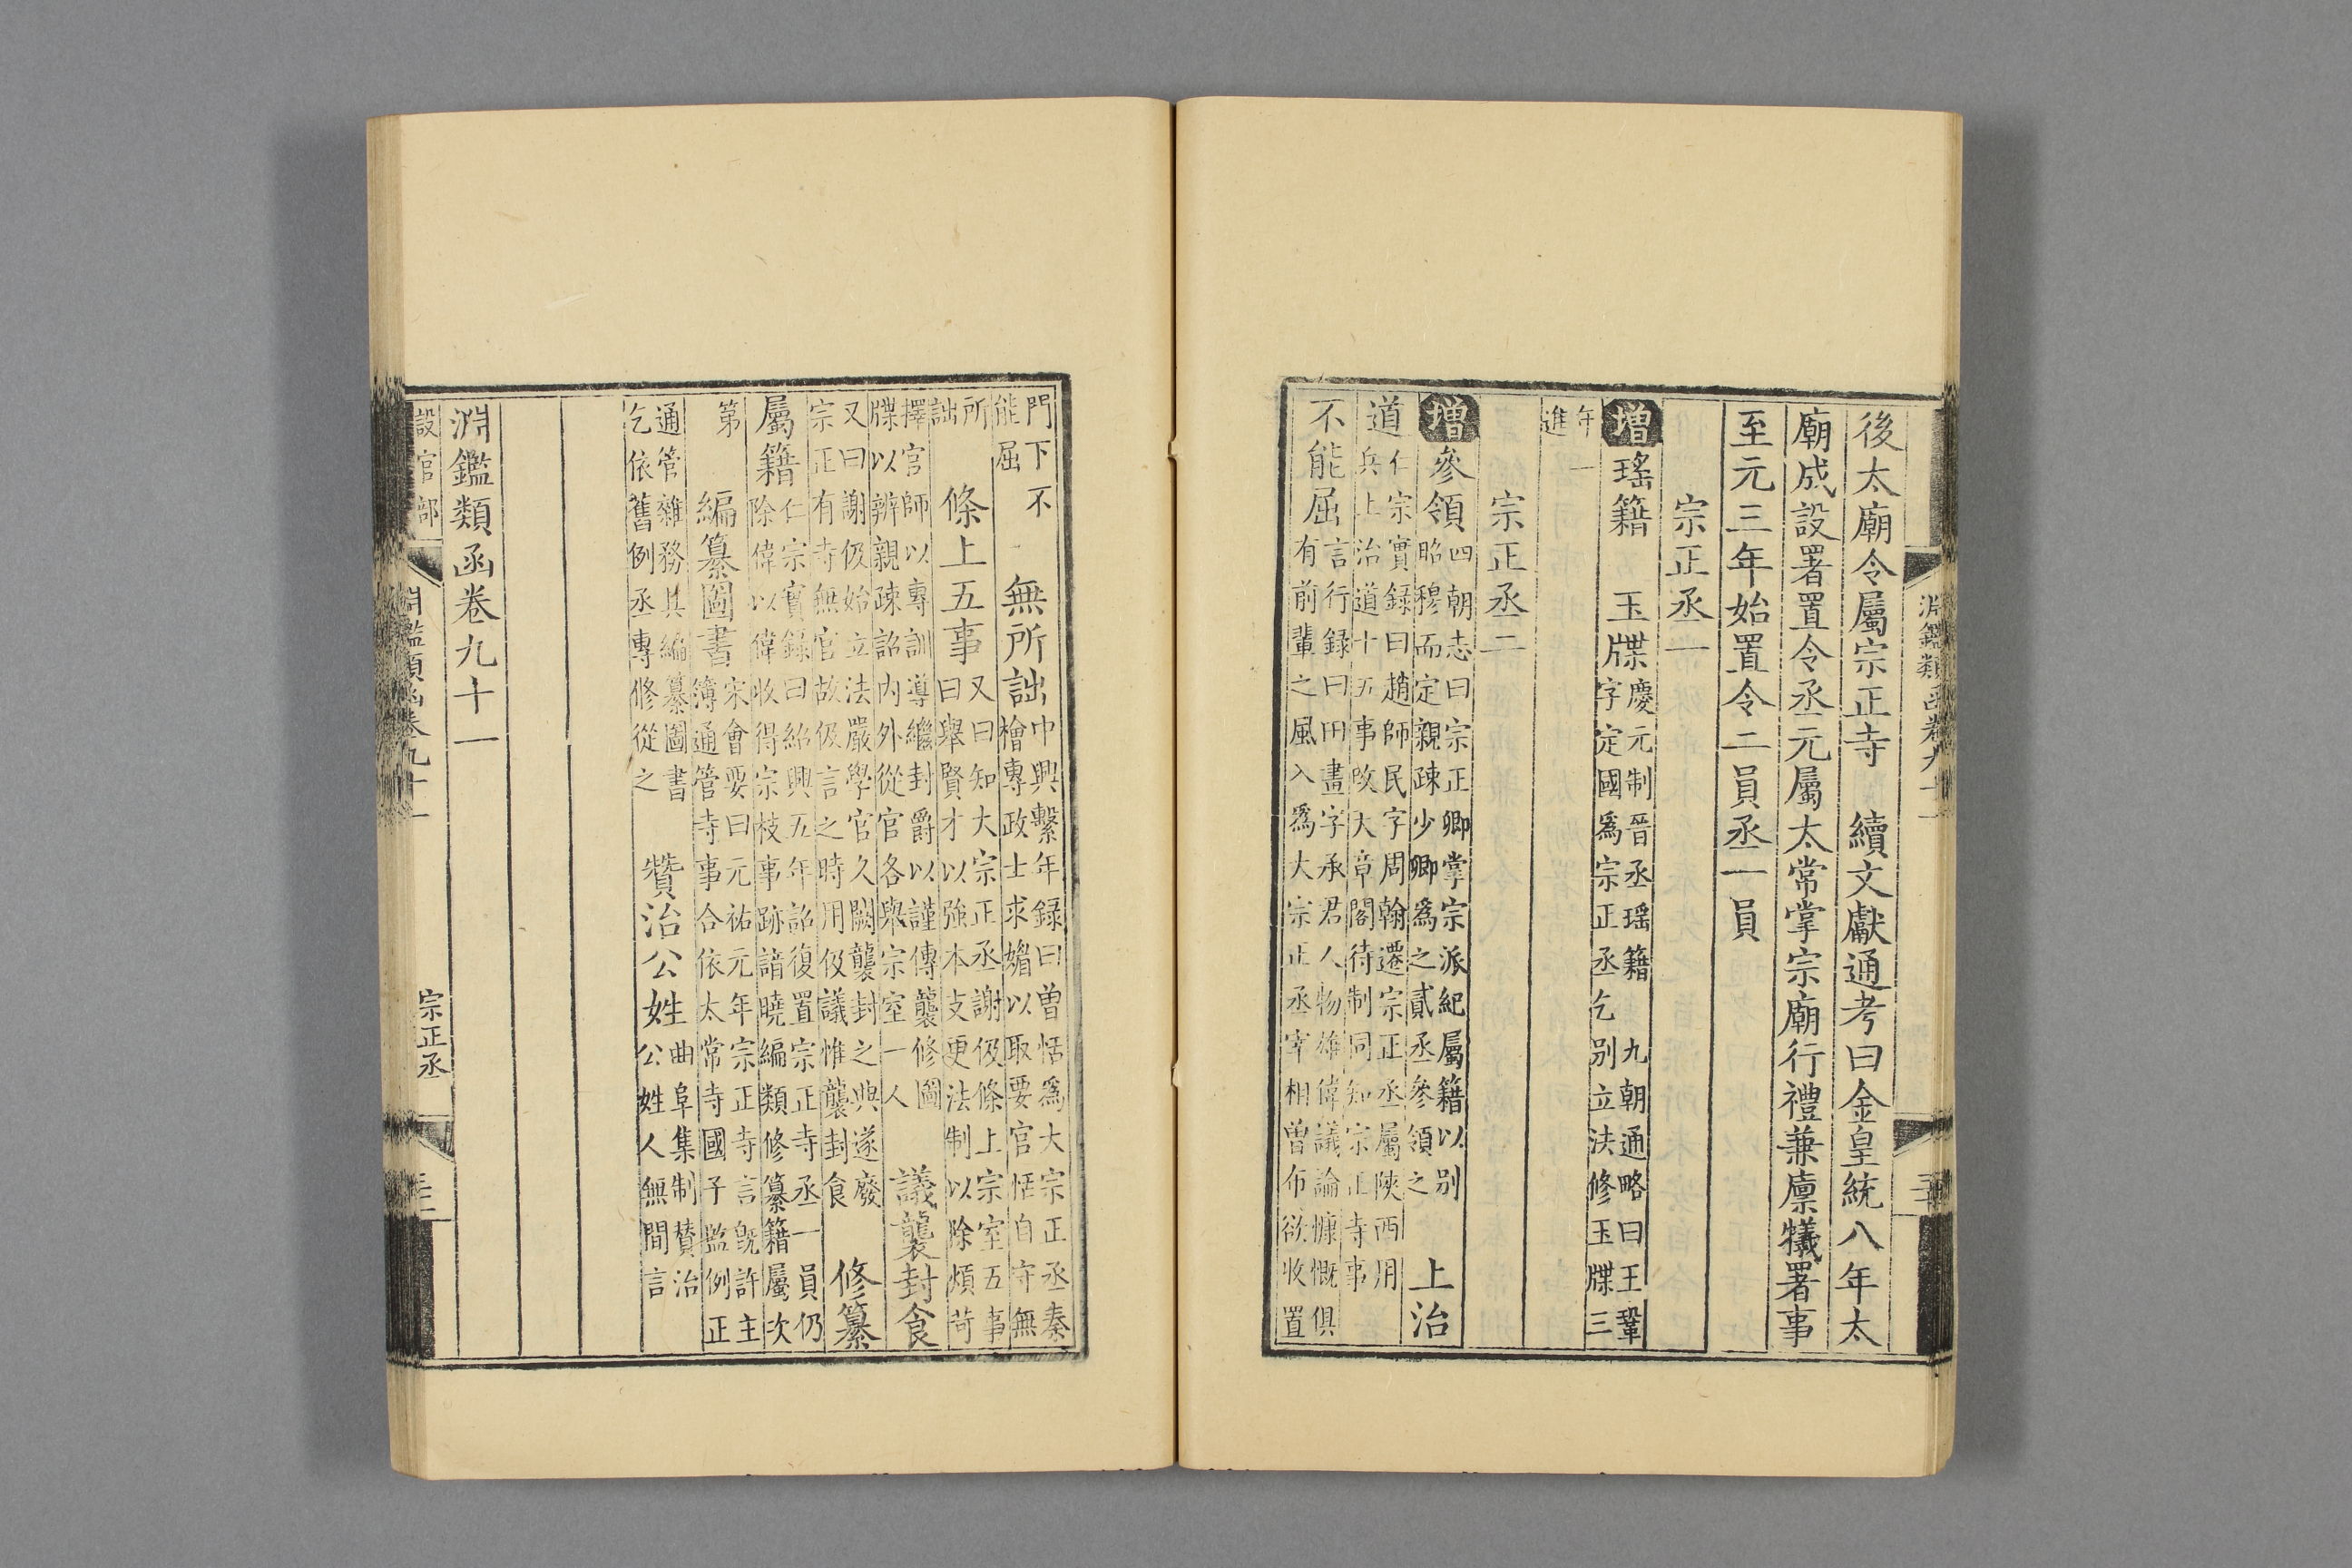 淵鑑類函卷九十一
後太廟令屬宗正寺　續文獻通考曰金皇統八年太
廟成設署置令丞元屬太常掌宗廟行禮兼廩犧署事
至元三年始置令二員丞一員
宗正丞一
增瑤籍　玉牒
慶元制晉丞瑤籍　九朝通略曰王鞏
字定國爲宗正丞乞别立法修玉牒三
年一
進
宗正丞二
增參領
四朝志曰宗正卿掌宗派紀屬籍以别
昭穆而定親疎少卿爲之貳丞參領之
上治
道
仁宗實錄曰趙師民字周翰遷宗正丞屬陝西用
兵上治道十五事改天章閣待制同知宗正寺事
不能屈
言行錄曰田晝字承君人物雄偉議論慷慨俱
有前輩之風入爲大宗正丞宰相曾布欲收置
門下不
能屈
無所詘
中興繫年錄曰曾恬爲大宗正丞秦
檜專政士求媚以取要官恬自守無
所
詘
條上五事
又曰知大宗正丞謝伋條上宗室五事
曰舉賢才以強本支更法制以除煩苛
擇官師以專訓導繼封爵以謹傳襲修圖
牒以辨親疎詔内外從官各舉宗室一人
議襲封食
又曰謝伋始立法嚴學官久闕襲封之典遂廢
宗正有寺無官故伋言之時用伋議惟襲封食
修纂
屬籍
仁宗實錄曰紹興五年詔復置宗正寺丞一員仍
除偉以偉收得宗枝事跡諳曉編類修纂籍屬次
第
編纂圖書
宋會要曰元祐元年宗正寺言既許主
簿通管寺事合依太常寺國子監例正
通管雜務其編纂圖書
乞依舊例丞專修從之
贊治公姓
曲阜集制贊治
公姓人無間言
淵鑑類函卷九十一
設官部
淵鑑類函卷九十一
宗正丞